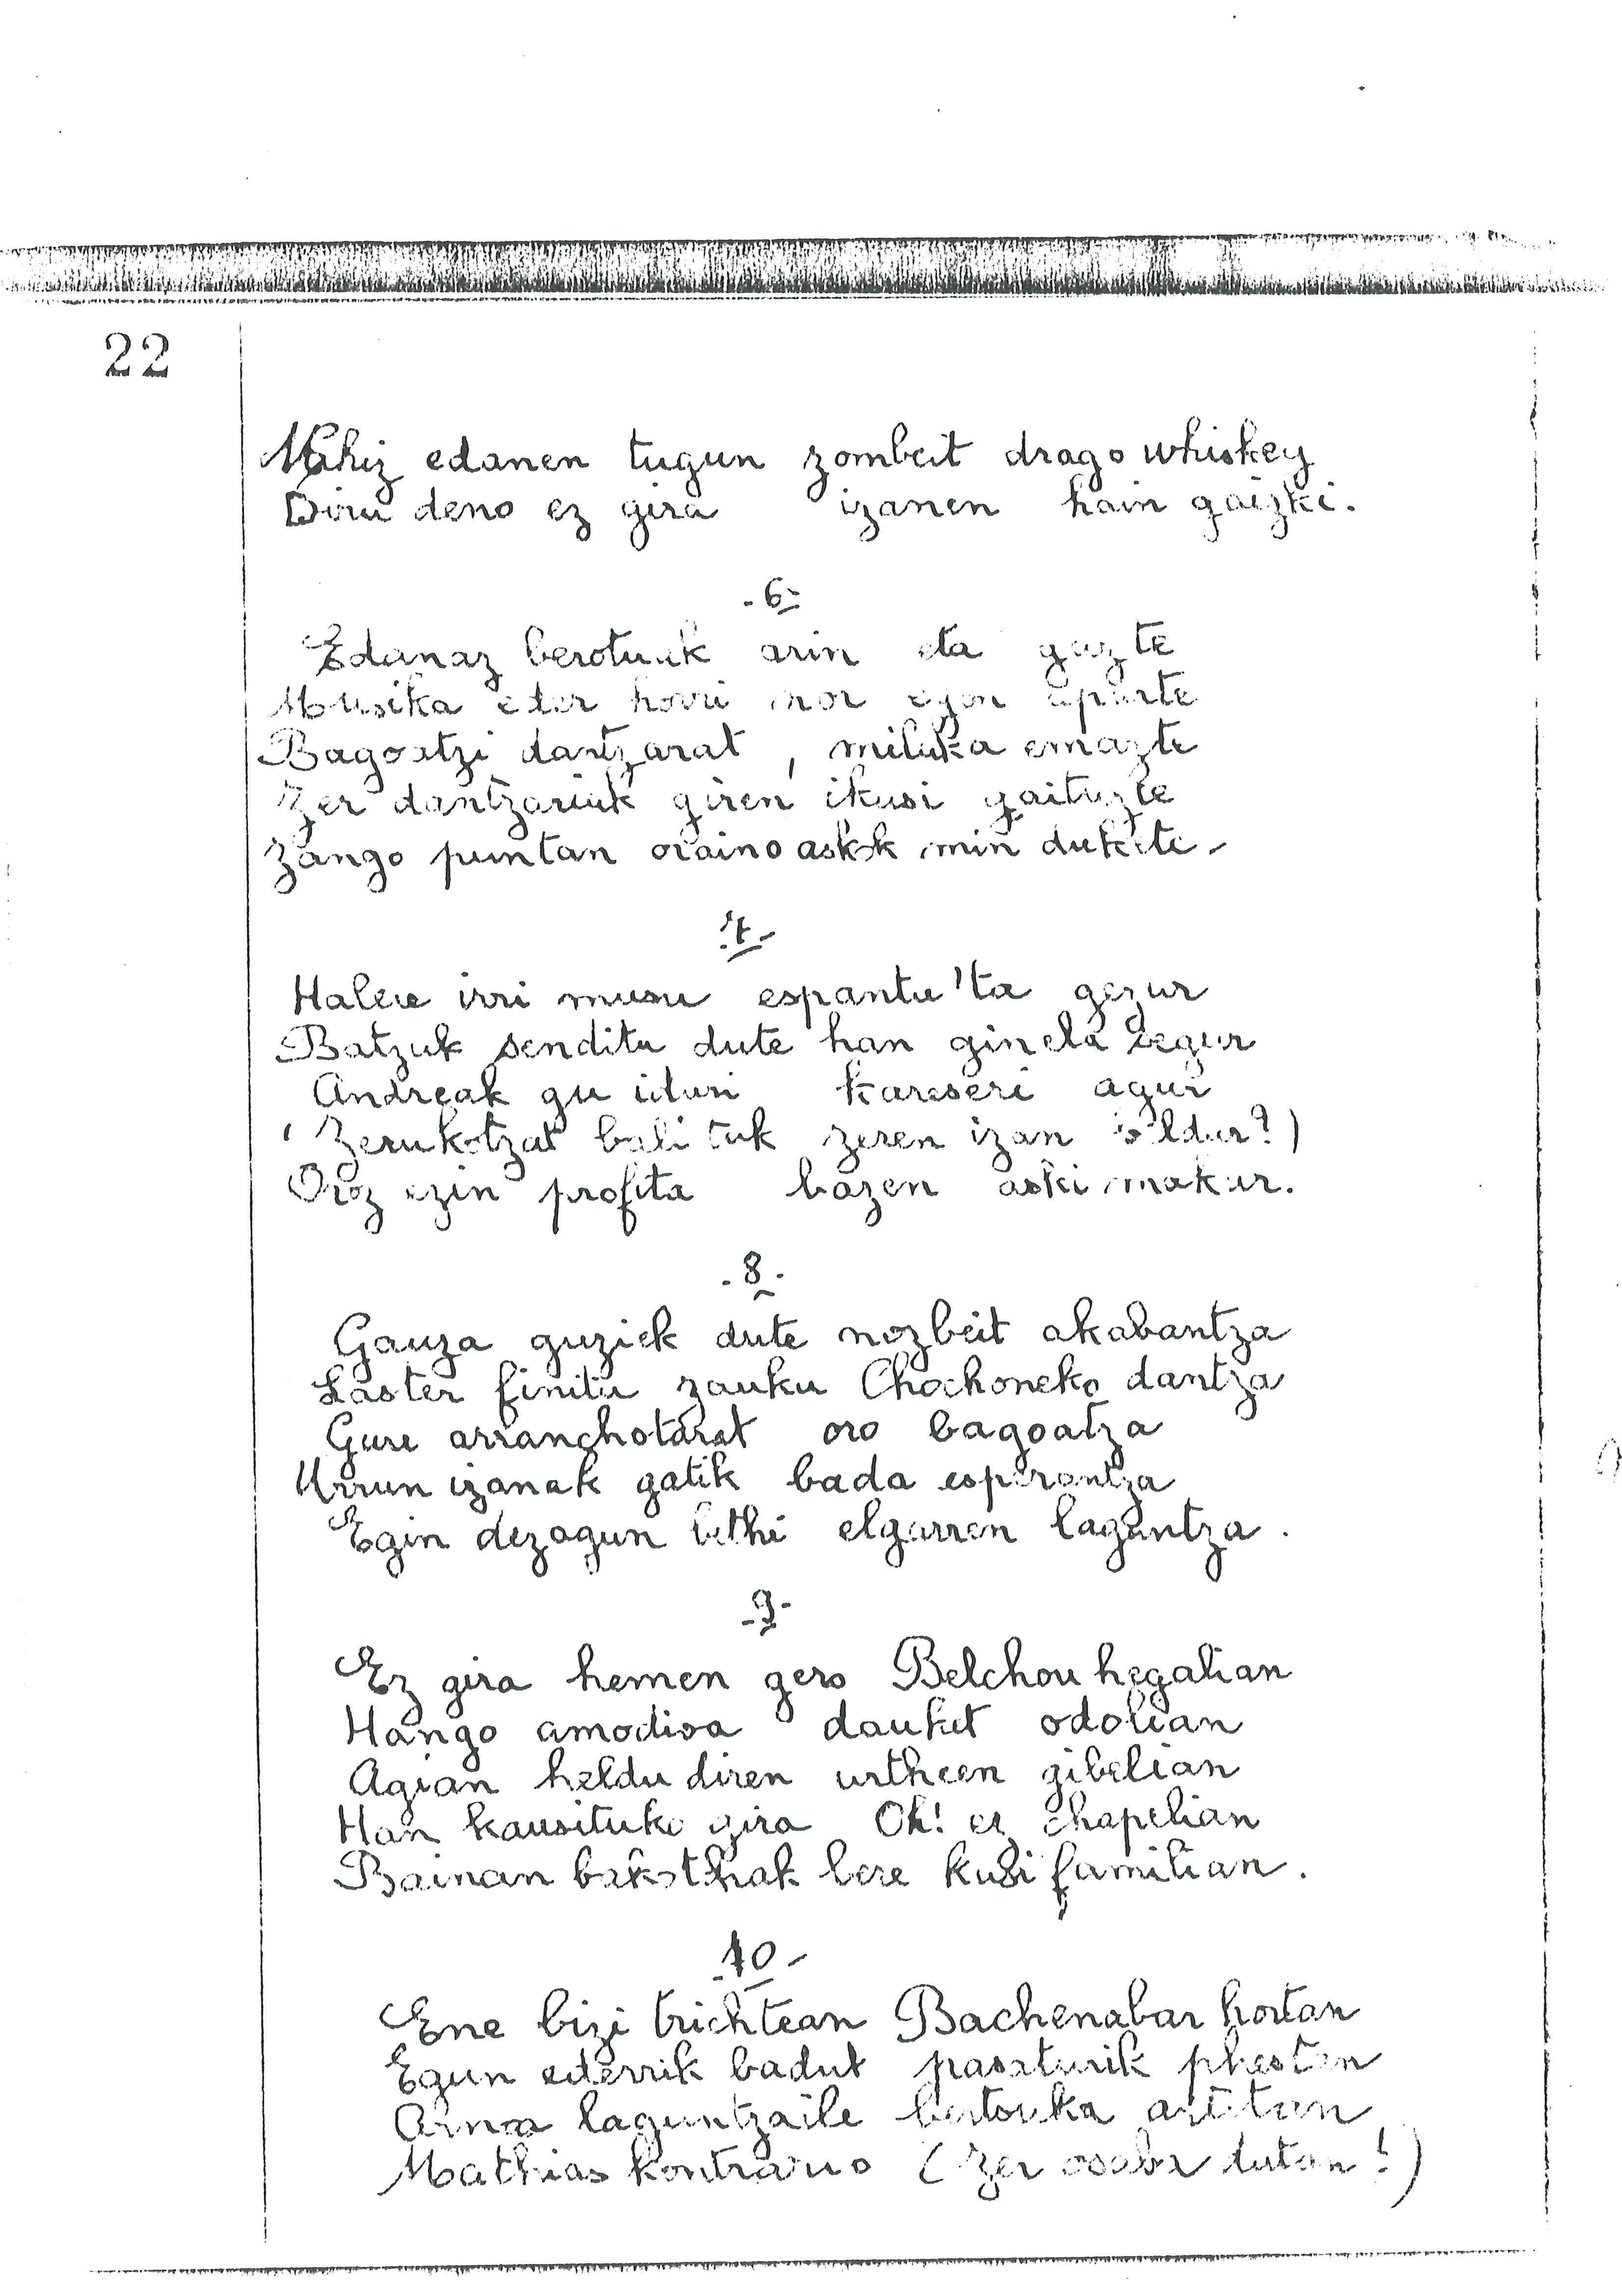 22
Nahiz edanen tugun zombeit drago whiskey
Diru deno ez gira izanen hain gaizki.
-6-
Edanaz berotuak arin eta gazte
Musika eder horri nor egon aparte
Bagoatzi dantzarat, miluka emazte
Zer dantzariak giren ikusi gaituzte
Zango puntan oraino askok min dukete-
-7-
Halere irri musu espantu'ta gezur
Batzuk senditu dute han ginela segur
Andreak gu iduri kareseri agur
(Zerukotzat balituk zeren izan beldur?)
Oroz ezin profita bazen aski makur.
-8-
Gauza guziek dute nozbeit akabantza
Laster finitu zauku Chochoneko dantza
Gure arranchotarat oro bagoatza
Urrun izanak gatik bada esperantza
Egin dezagun bethi elgarren laguntza.
-9-
Ez gira hemen gero Belchou hegalian
Hango amodioa dauket odolian
Agian heldu diren urtheen gibelian
Han kausituko gira Oh! ez chapelian
Bainan bakotchak bere kusi familian.
-10-
Ene bizi trichtean Bachenabar hortan
Egun ederrik badut pasaturik phestan
Arnoa laguntzaile bertsuka aritan
Mathias kontrario (zer osaba dutan!)